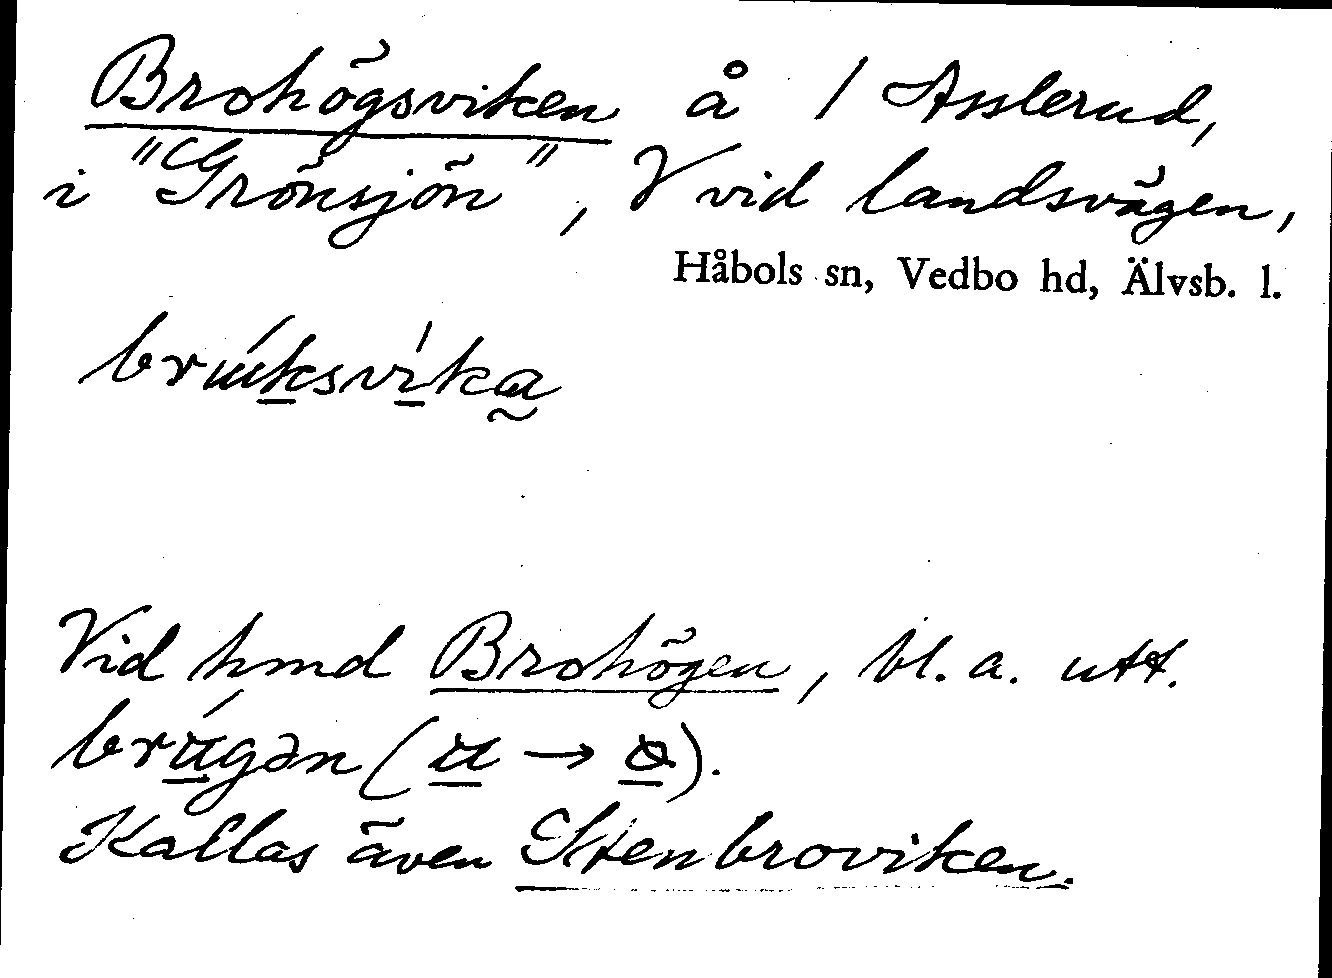 Brohögsviken å 1 Asslerud,
i "Grönsjön", V vid landsvägen,
Håbols sn, Vedbo hd, Älvsb. l.
brúksvíka
Vid hmd Brohögen, bl. a. utt.
brúgən (u → ɷ).
Kallas även Stenbroviken.